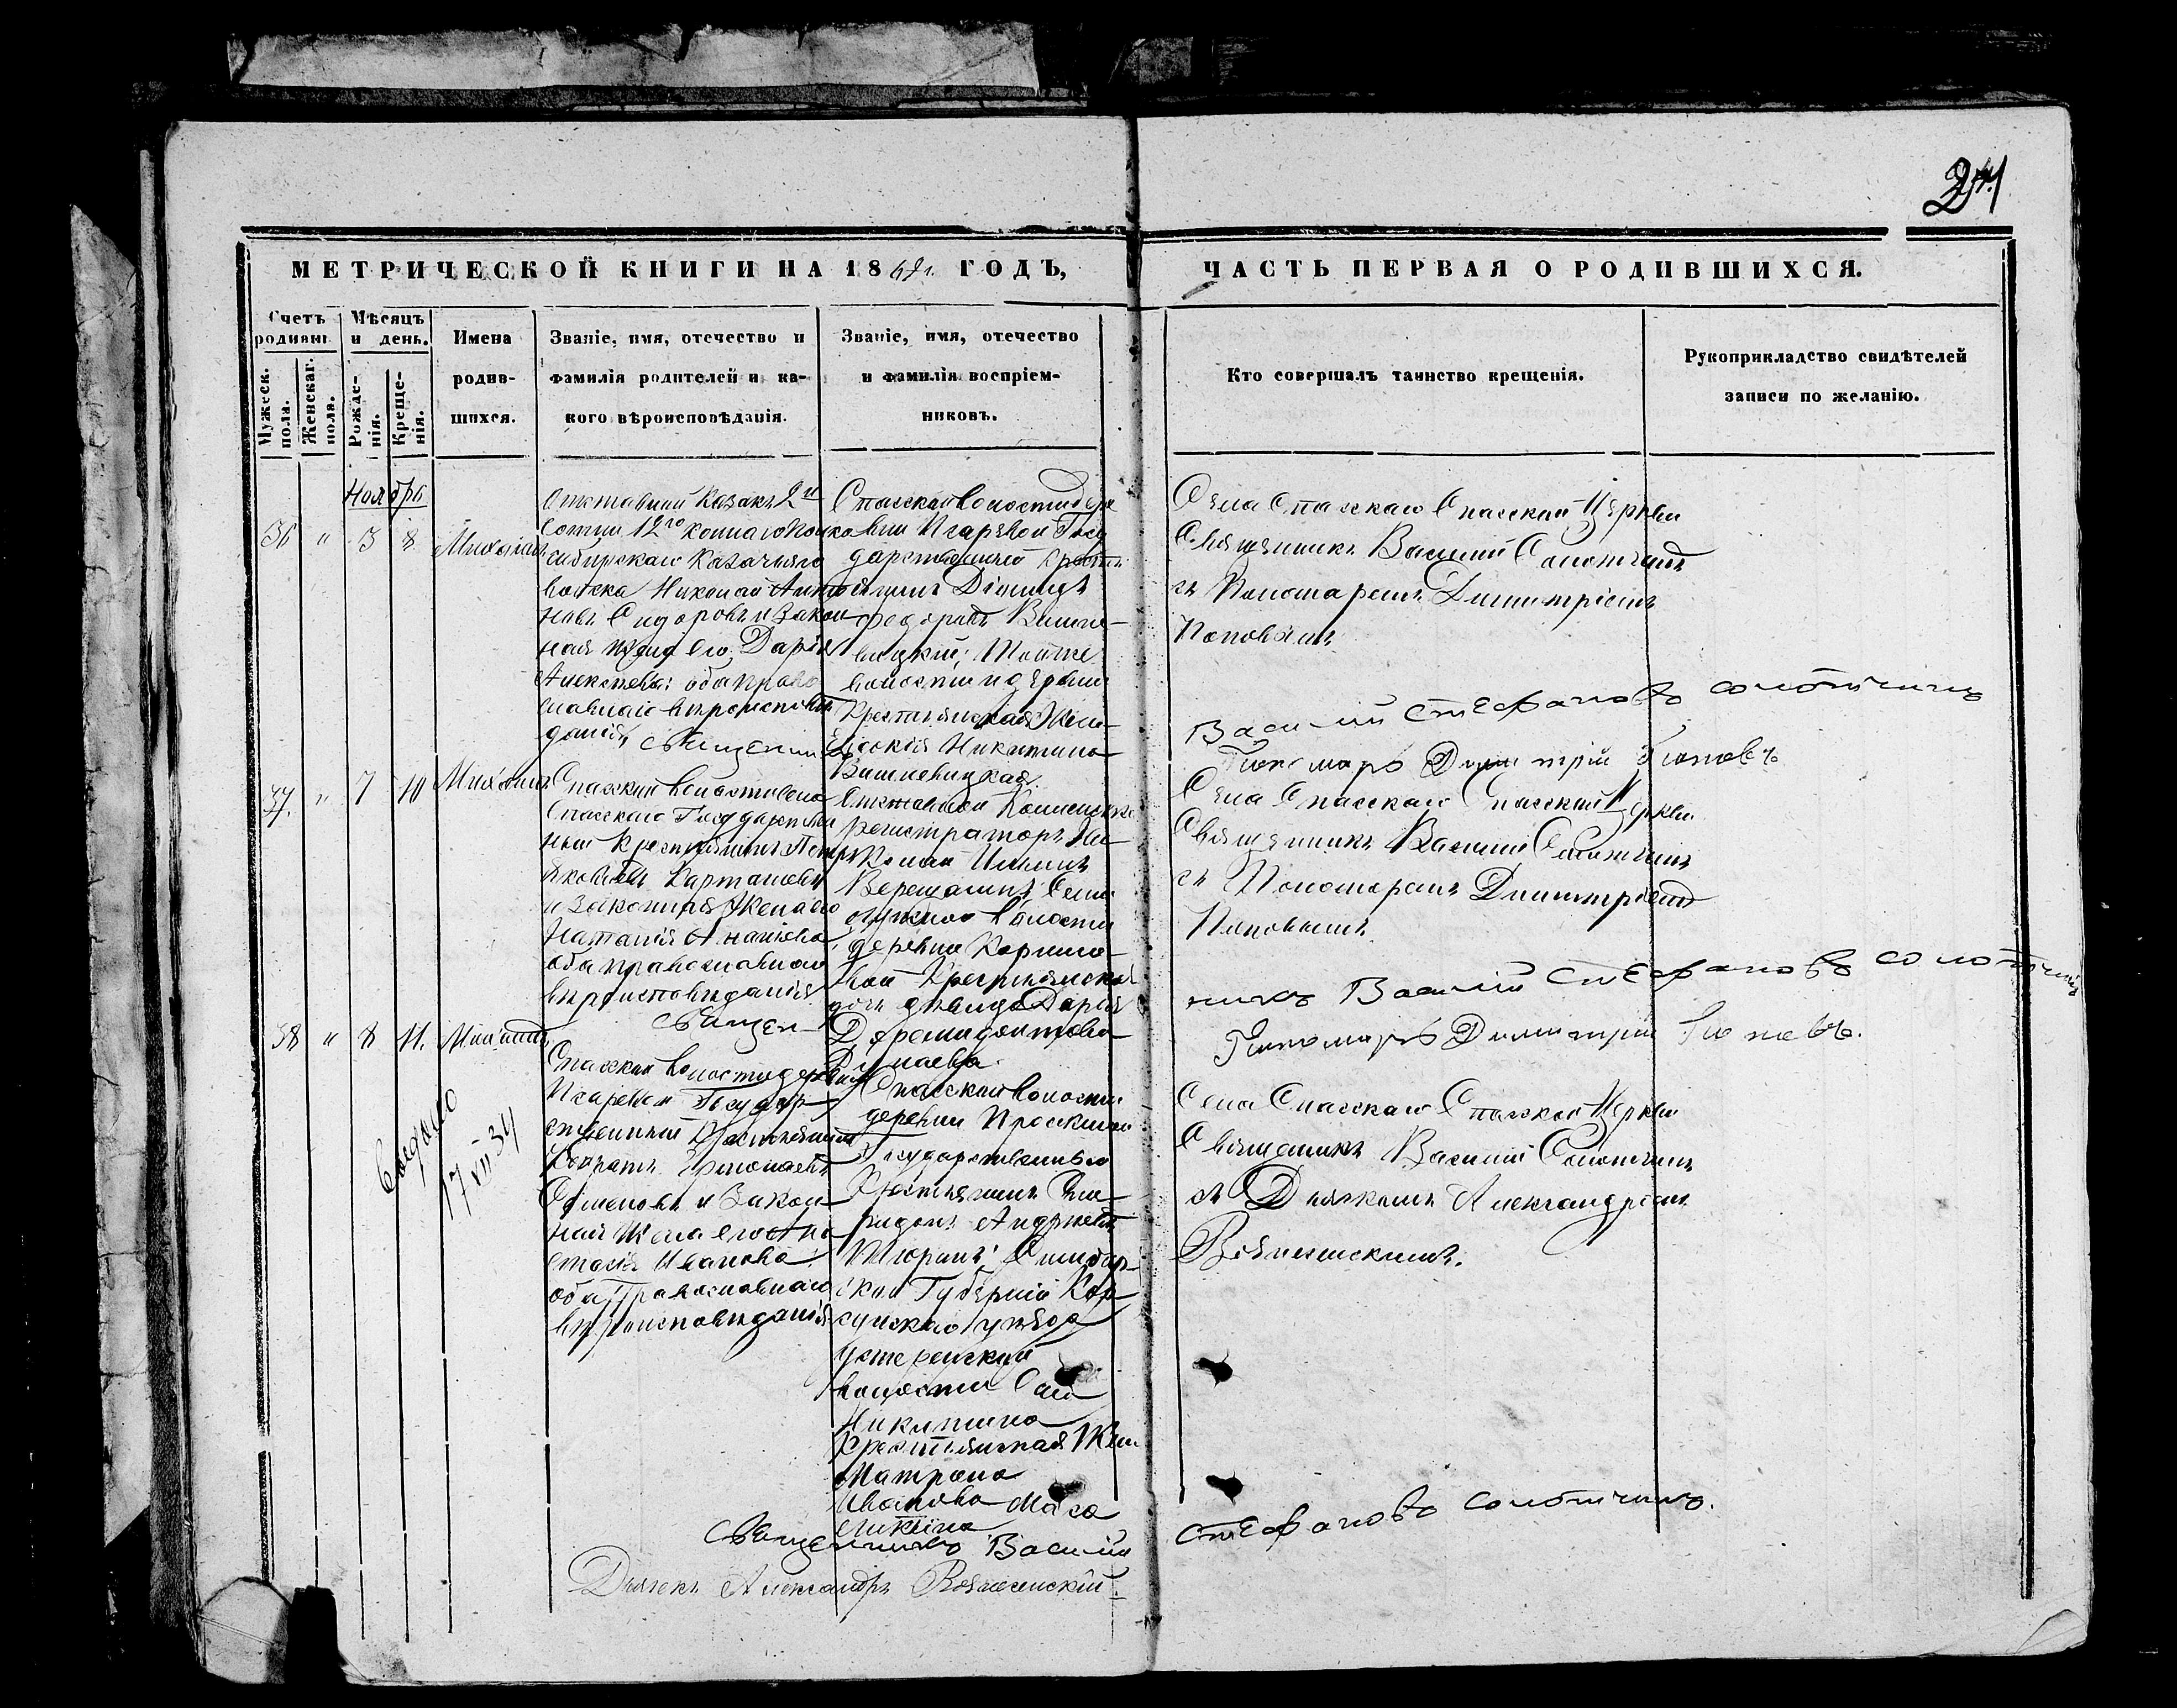 МЕТРИЧЕСКОЙ КНИГИ НА 18 ГОДЪ,
ЧАСТЬ ПЕРВАЯ О РОДИВШИХСЯ.
Счетъ родивш.
Мужеск. пола.
Женскаг. пола.
Мѣсяцъ и день.
Рожде-
нія.
Креще-
нія.
Имена
родив-
шихся.
Званіе, имя, отечество и
фамилія родителей и ка-
кого вѣроисповѣданія.
Званіе, имя, отечество
и фамилія воспріем-
никовъ.
Кто совершалъ таинство крещенія.
Рукоприкладство свидѣтелей
записи по желанію.
Ноября
36 " 3 8 Михаилъ
Отставной Казакъ 2й
Сотни 12го коннаго полка
сибирскаго Казачьяго
войска Николай Анто
новъ Сидоровъ и закон
ная жена его Дарія
Алексѣева: оба право
славнаго вѣроисповѣ
данія
Спасской волости дере
вни Псаревой Госу
дарственный кресть
янинъ Діомидъ
Федоровъ Вишне-
вицкій; Той же
волости и деревни
Крестьянская Жен-
Никитина
Вишневицкая
Села Спаскаго Спасской Церкви
Священникъ Василій Солотчинъ
съ Пономаремъ Димитріемъ
Поповымъ.
Священникъ Василій Стефановъ Солотчинъ
Пономарь Димитрій Поповъ
37. " 7 10 Михаилъ
Спасской волости села
Спасскаго Государствен
ный Крестьянинъ Петръ
Яковлевъ Карташевъ
и Законная Жена его
Наталія Ананіева
оба православнаго
вѣроисповѣданія
Отставной Коллежскій
Регистраторъ Ни-
колай Ильинъ
Верещагинъ;
волости
деревни
Крестьянская
дочь дѣвица Дарія
Села Спасскаго Спасской Церкви
Священникъ Василій Солотчинъ
съ Пономаремъ Димитріемъ
Поповымъ.
Священникъ Василій Стефановъ Солотчинъ
Пономарь Димитрій Поповъ.
38 " 8 11. Михаилъ
17 VII 34
Спасской волости деревни
Псаревой Государ
ственный Крестьянинъ
Кондратъ Ермолаевъ
Семеновъ и Закон
ная Жена его Ана
стасія Иванова
оба Православнаго
вѣроисповѣданія
Спасской волости
деревни
Государственный
Крестьянинъ Спи-
ридонъ Андреевъ
Тюринъ; Симбир-
ской Губерніи Кор
сунскаго уѣзда
волости Села
Никитина
Крестьянская Жена
Матрона
Иванова
Села Спасскаго Спаской Церкви
Священникъ Василій Солотчинъ
съ Дьячкомъ Александромъ
Вознесенскимъ.
Священникъ Василій Стефановъ Солотчинъ.
Дьячекъ Александръ Вознесенскій